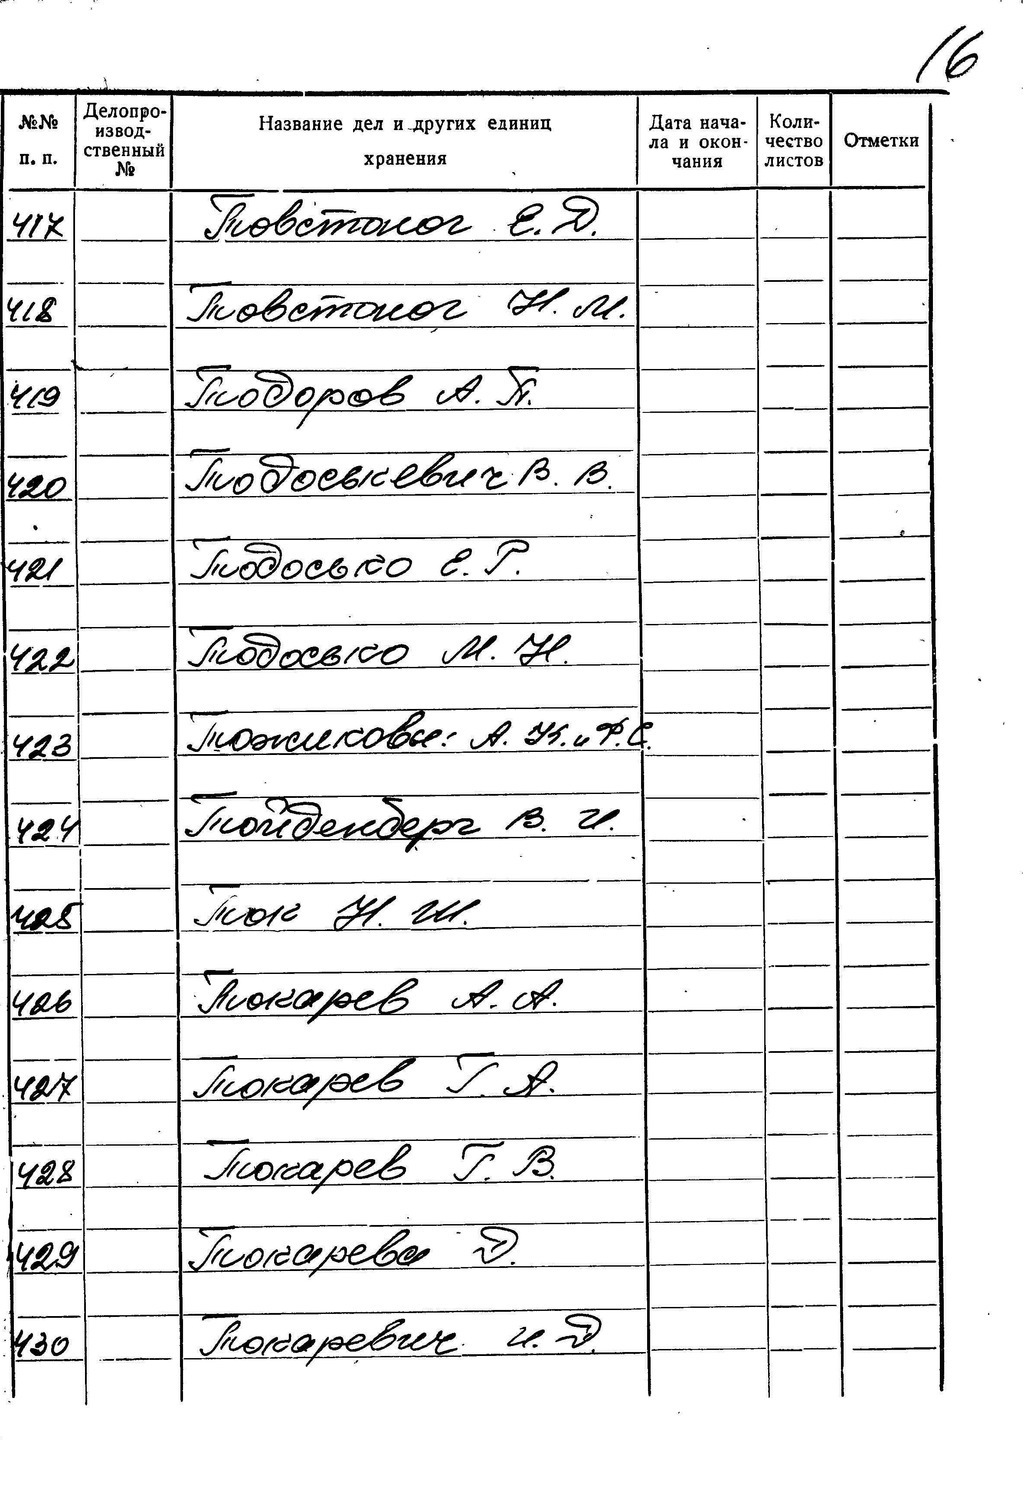 16
№№ п. п. Делопро-изводственный № Название дел и других единиц хранения Дата начала и окончания Количество листов Отметки
417 Товстоног Е. Д.
418 Товстоног Н. М.
419 Тодоров А. П.
420 Тодоськевич В. В.
421 Тодосько Е. Г.
422 Тодосько М. Н.
423 Тожиковы: А. К. и Ф. С.
424 Тойденберг В. И.
425 Ток Н. Ш.
426 Токарев А. А.
427 Токарев Г. А.
428 Токарев Г. В.
429 Токарева Д.
430 Токаревич И. Д.